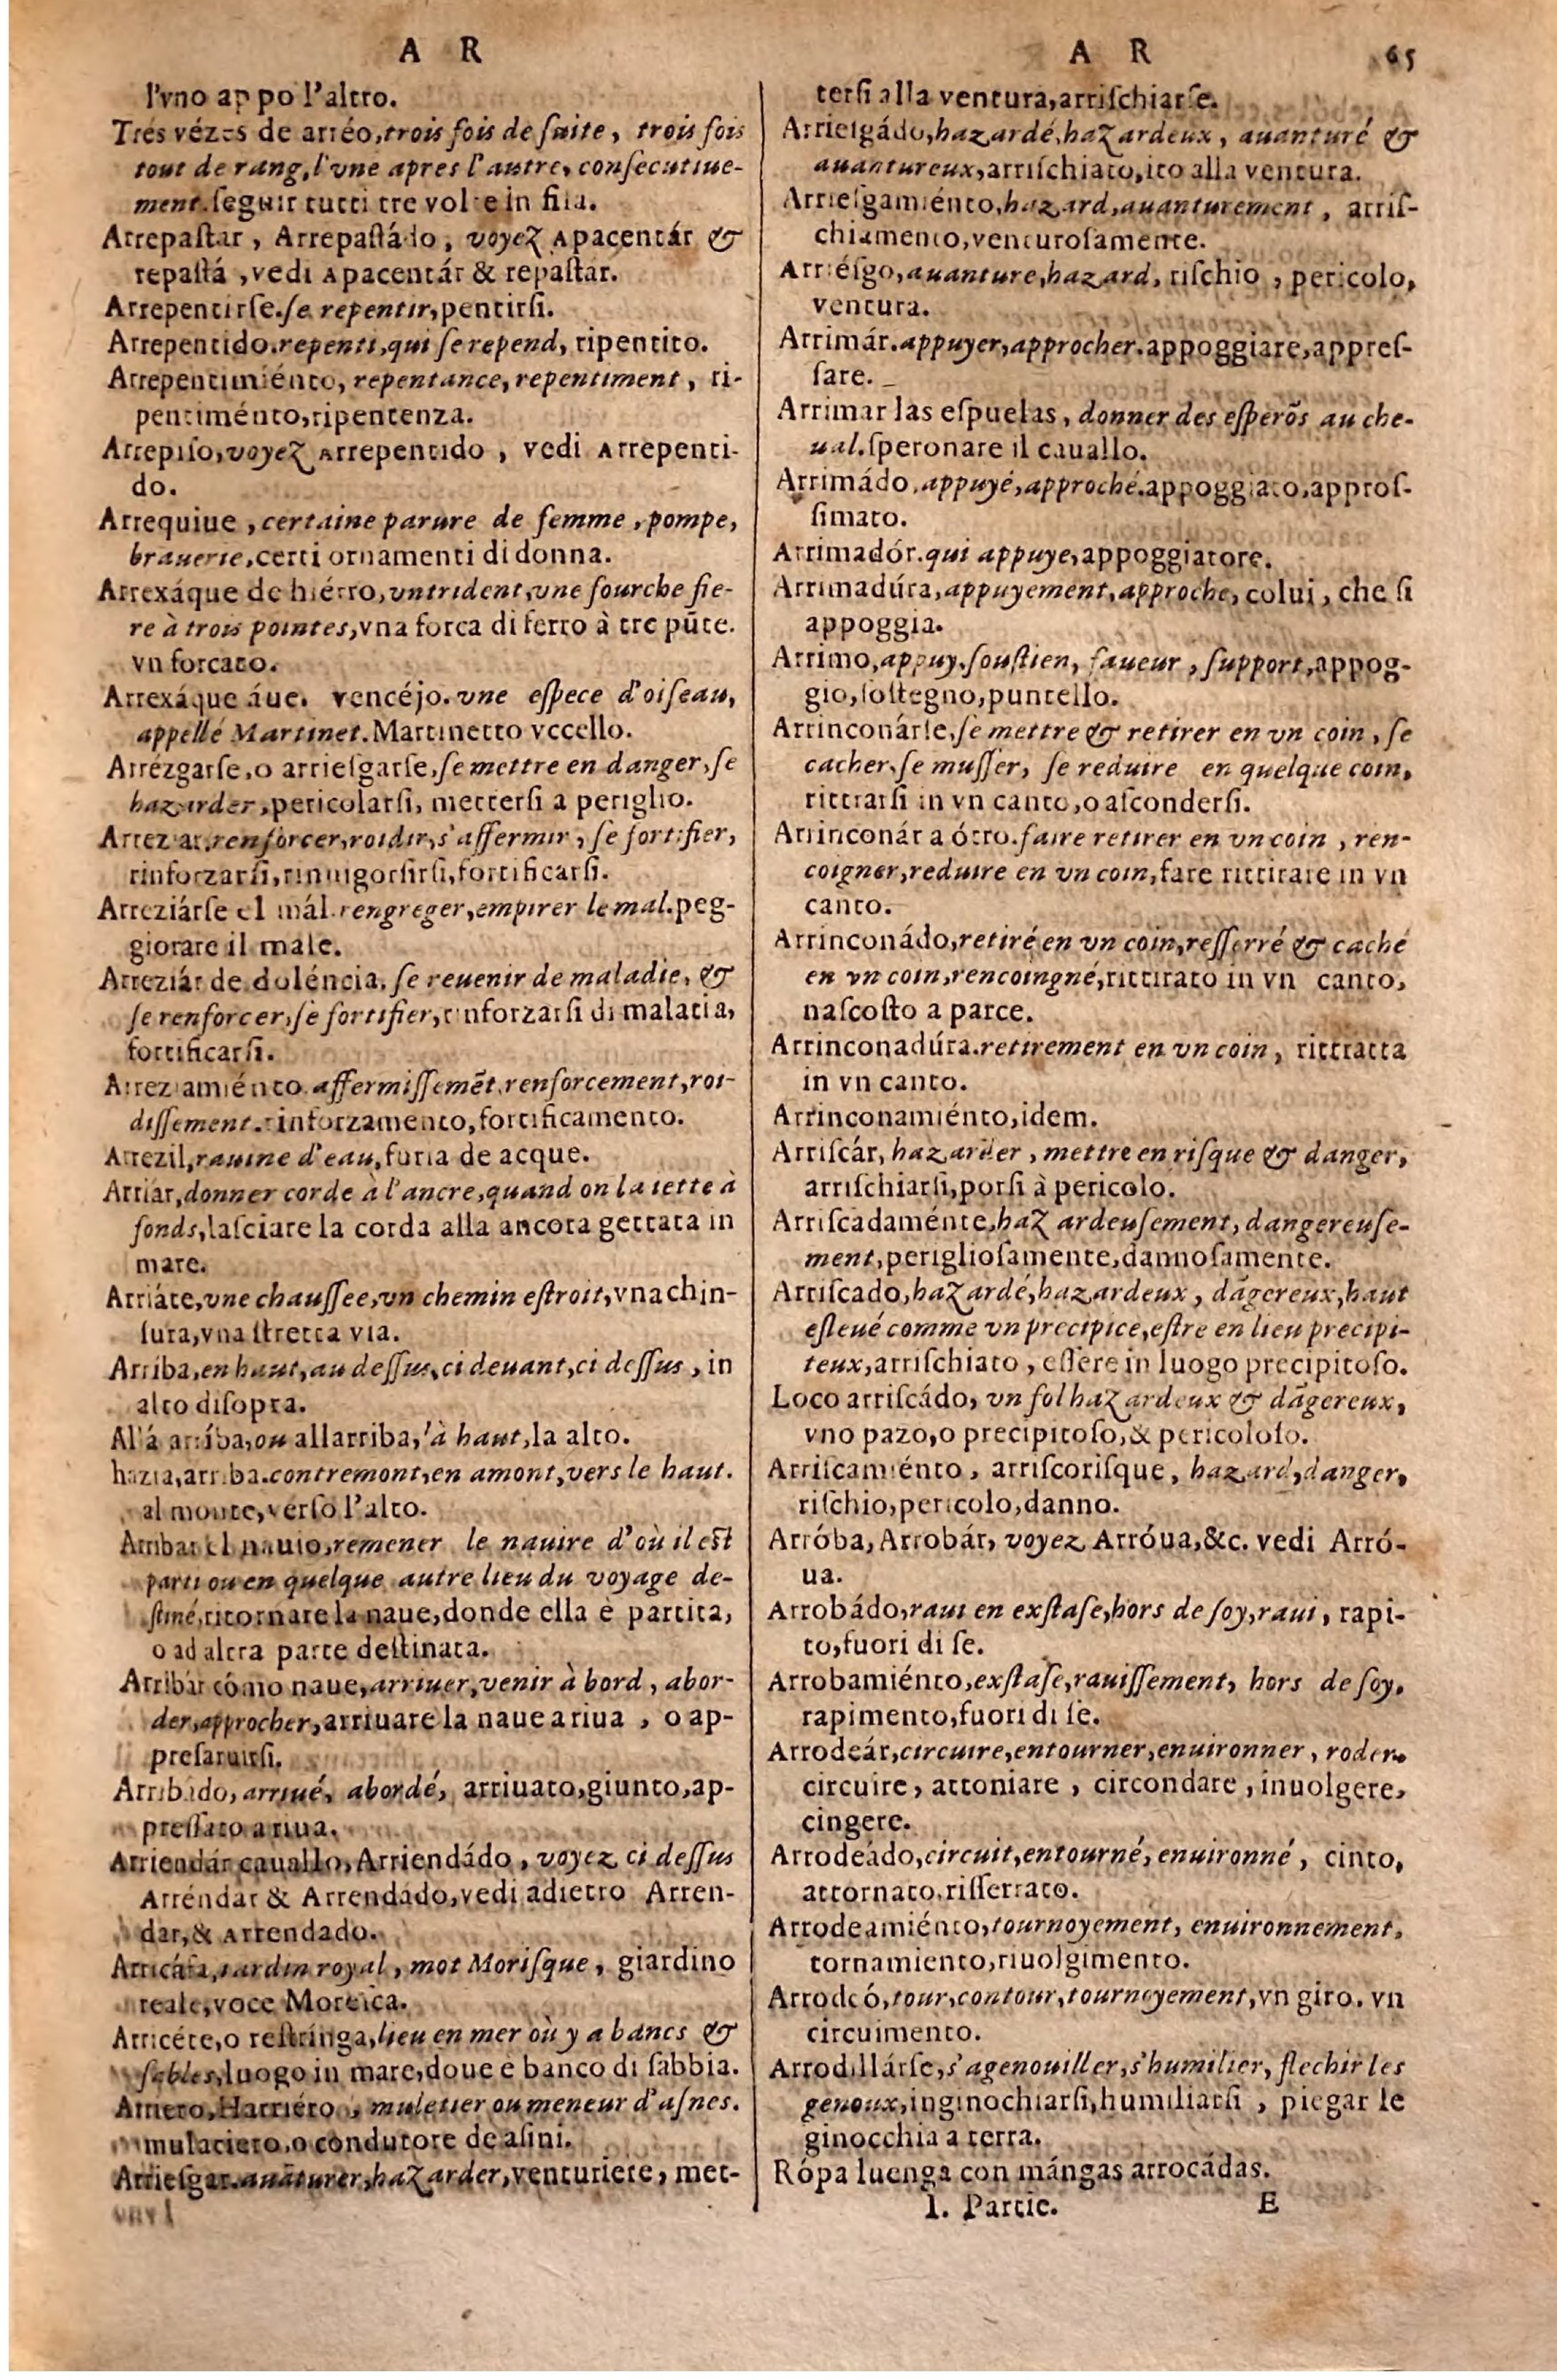 A R
l'vno appo l'altro.
Trés vézes de arréo, trois fois de suite, trois fois
tout de rang, l'vne apres l'autre, consecutiue-
ment. seguir tutti tre volte in fila.
Arrepaſtar, Arrepaſtádo, voyez Apacentár &
repaſtá, vedi Apacentár & repaſtar.
Arrepentirſe. ſe repentir, pentirſi.
Arrepentido. repenti, qui ſe repend, ripentito.
Arrepentimiénto, repentance, repentiment, ri-
pentiménto, ripentenza.
Arrepiſo, voyez Arrepentido, vedi Arrepenti-
do.
Arrequiue, certaine parure de femme, pompe,
brauerie, certi ornamenti di donna.
Arrexáque de hiérro, vn trident, vne fourche fie-
re à trois pointes, vna forca di ferro à tre pūte.
vn forcato.
Arrexáque áue. vencéjo. vne eſpece d'oiſeau,
appellé Martinet. Martinetto vccello.
Arrézgarſe, o arrieſgarſe, ſe mettre en danger, ſe
hazarder, pericolarſi, metterſi a periglio.
Arreziar. renforcer, roidir, s'affermir, ſe fortifier,
rinforzarſi, rinuigorſirſi, fortificarſi.
Arreziárſe el mál. rengreger, empirer le mal. peg-
giorare il male.
Arreziár de doléncia. ſe reuenir de maladie, &
ſe renforcer, ſe fortifier, rinforzarſi di malatia,
fortificarſi.
Arreziamiénto. affermiſſemēt, renforcement, roi-
diſſement. rinforzamento, fortificamento.
Arrezil, rauine d'eau, furia de acque.
Arriár, donner corde à l'ancre, quand on la iette à
fonds, laſciare la corda alla ancora gettata in
mare.
Arriáte, vne chauſſee, vn chemin eſtroit, vna chin-
ſura, vna ſtretta via.
Arriba, en haut, au deſſus, ci deuant, ci deſſus, in
alto diſopra.
Allá arríba, ou allarriba, là haut, la alto.
hazia, arriba. contremont, en amont, vers le haut.
al monte, verſo l'alto.
Arribar el nauio, remener le nauire d'où il eſt
parti ou en quelque autre lieu du voyage de-
ſtiné, ritornare la naue, donde ella è partita,
o ad altra parte deſtinata.
Arribár cómo naue, arriuer, venir à bord, abor-
der, approcher, arriuare la naue a riua, o ap-
preſaruirſi.
Arribado, arriué, abordé, arriuato, giunto, ap-
preſſato a riua.
Arriendár cauallo, Arriendádo, voyez ci deſſus
Arréndar & Arrendádo, vedi adietro Arren-
dar, & Arrendado.
Arricáfa, iardin royal, mot Moriſque, giardino
reale, voce Moreica.
Arricéte, o reſtrínga, lieu en mer où y a bancs &
ſables, luogo in mare, doue è banco di ſabbia.
Arriero, Harriéro, muletier ou meneur d'aſnes.
mulaciero, o condutore de aſini.
Arrieſgar. auāturer, hazarder, venturiere, met-
A R 65
terſi alla ventura, arriſchiarſe.
Arrieſgádo, hazardé, hazardeux, auanturé &
auantureux, arriſchiato, ito alla ventura.
Arrieſgamiénto, hazard, auanturement, arriſ-
chiamento, venturoſamente.
Arriéſgo, auanture, hazard, riſchio, pericolo,
ventura.
Arrimár. appuyer, approcher. appoggiare, appreſ-
ſare.
Arrimar las eſpuelas, donner des eſperōs au che-
ual. ſperonare il cauallo.
Arrimádo. appuyé, approché. appoggiato, approſ-
ſimato.
Arrimadór. qui appuye, appoggiatore.
Arrimadúra, appuyement, approche, colui, che ſi
appoggia.
Arrimo, appuy, ſouſtien, faueur, ſupport, appog-
gio, ſoſtegno, puntello.
Arrinconárſe, ſe mettre & retirer en vn coin, ſe
cacher, ſe muſſer, ſe reduire en quelque coin,
rittrarſi in vn canto, o aſconderſi.
Arrinconár a ótro. faire retirer en vn coin, ren-
coigner, reduire en vn coin, fare rittirare in vn
canto.
Arrinconádo, retiré en vn coin, reſſerré & caché
en vn coin, rencoingné, rittirato in vn canto,
naſcoſto a parte.
Arrinconadúra. retirement en vn coin, rittratta
in vn canto.
Arrinconamiénto, idem.
Arriſcár, hazarder, mettre en riſque & danger,
arriſchiarſi, porſi à pericolo.
Arriſcadaménte, hazardeuſement, dangereuſe-
ment, periglioſamente, dannoſamente.
Arriſcado, hazardé, hazardeux, dāgereux, haut
eſleué comme vn precipice, eſtre en lieu precipi-
teux, arriſchiato, eſſere in luogo precipitoſo.
Loco arriſcádo, vn fol hazardeux & dāgereux,
vno pazo, o precipitoſo, & pericoloſo.
Arriſcamiénto, arriſcoriſque, hazard, danger,
riſchio, pericolo, danno.
Arróba, Arrobár, voyez Arróua, &c. vedi Arró-
ua.
Arrobádo, raui en exſtaſe, hors de ſoy, raui, rapi-
to, fuori di ſe.
Arrobamiénto, exſtaſe, rauiſſement, hors de ſoy,
rapimento, fuori di ſe.
Arrodeár, circuire, entourner, enuironner, roder.
circuire, attoniare, circondare, inuolgere,
cingere.
Arrodeádo, circuit, entourné, enuironné, cinto,
attornato, riſſerrato.
Arrodeamiénto, tournoyement, enuironnement,
tornamiento, riuolgimento.
Arrodeó, tour, contour, tournoyement, vn giro. vn
circuimento.
Arrodillárſe, s'agenouiller, s'humilier, flechir les
genoux, inginochiarſi, humiliarſi, piegar le
ginocchia a terra.
Rópa luenga con mángas arrocádas.
I. Partie. E